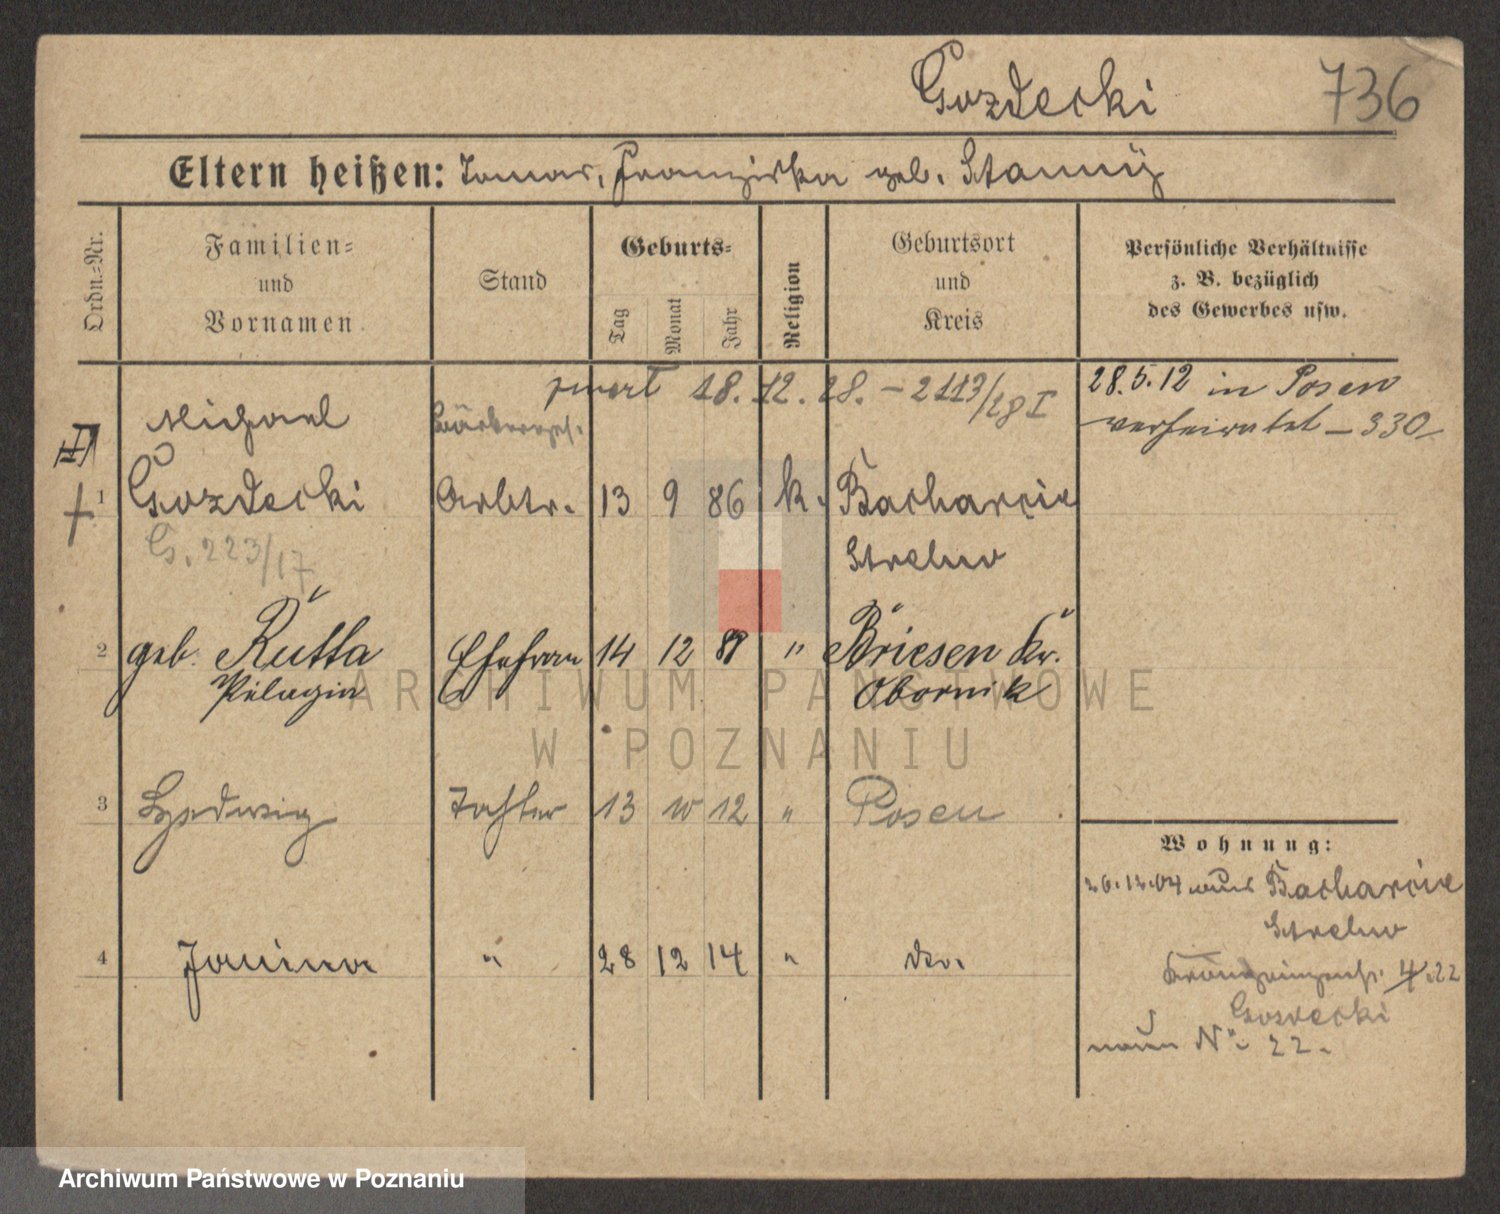 Gozdecki 736
Eltern heißen: Tomas, Franziska geb. Stanny
Ordn.=Nr.
Familien=
und
Vornamen
Stand
Geburts=
Tag
Monat
Jahr
Religion
Geburtsort
und
Kreis
Persönliche Verhältnisse
z. B. bezüglich
des Gewerbes usw.
18. 12. 28. – 2113/
28.5.12 in Posen
verheiratet – 330
Michael
III
1 Gozdecki Arbtr. 13 9 86 k. Bacharcie
Strelno
G. 223/17
2 geb. Rutta Ehefrau 14 12 " Briesen Kr.
Pelagia Obornik
3 Hedwig Tochter 13 10 12 " Posen
4 Janina " 28 12 14 " do.
Wohnung:
26.12.04 aus Bacharcie
Strelno
Kronprinzenstr. 4.22
Gozdecki
N° 22.
ARCHIWUM PAŃSTWOWE
W POZNANIU
Archiwum Państwowe w Poznaniu